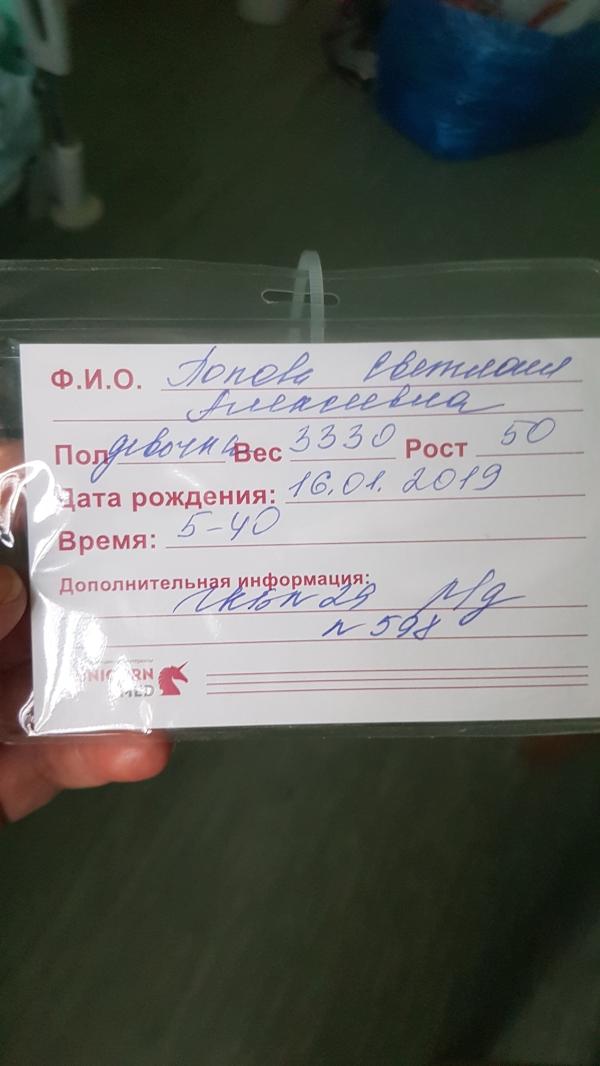 Ф.И.О. Попова Светлана
Алексеевна
Пол девочка Вес 3330 Рост 50
Дата рождения: 16.01.2019
Время: 5-40
Дополнительная информация:
ГКБ N 29 р/д
N 598
UNICORN
MED